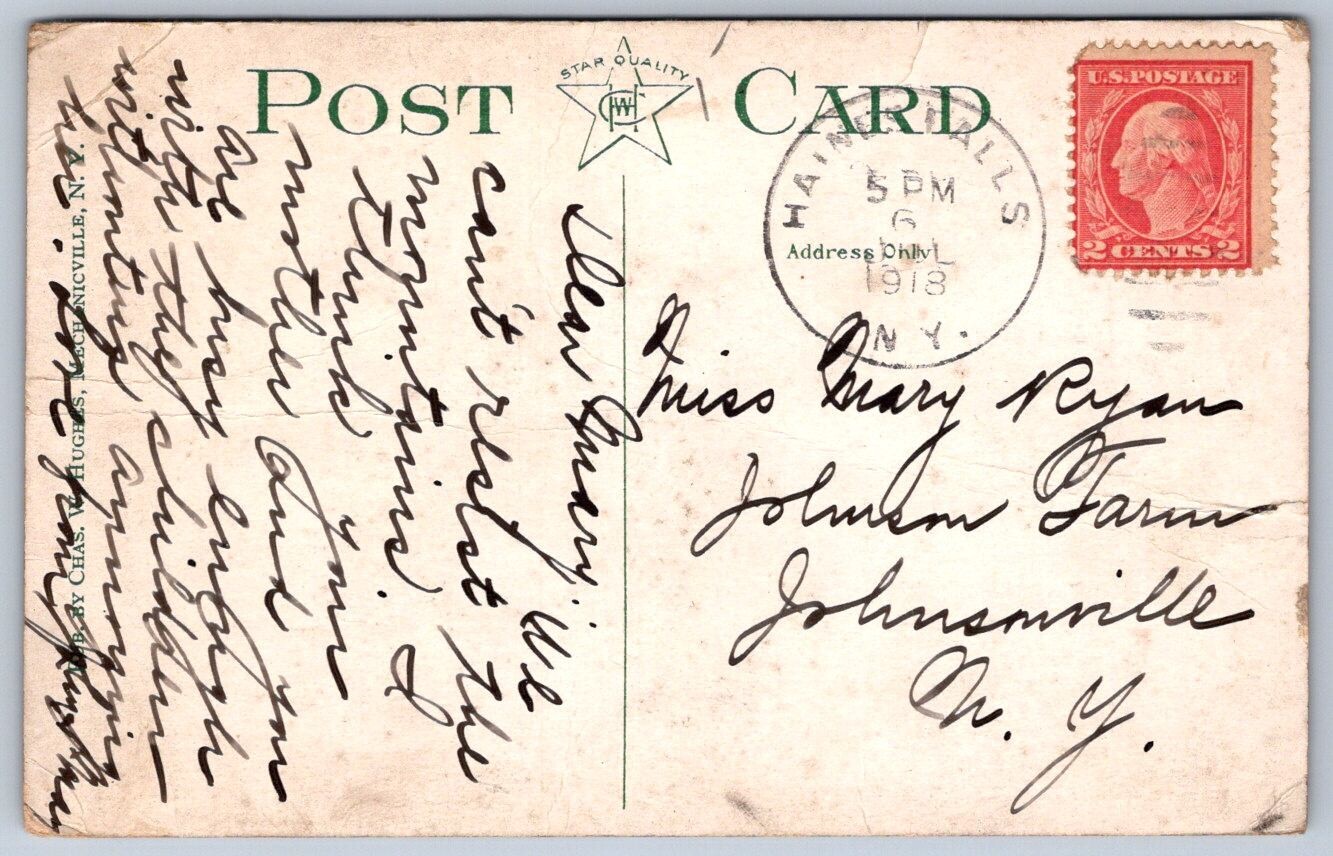 POST CARD
STAR QUALITY
CWH
HAINES FALLS
5 PM
6
JUL
1918
N.Y.
U.S. POSTAGE
2 CENTS 2
Address Only
Miss Mary Ryan
Johnson Farm
Johnsonville
N. Y.
Dear Mary: We
can't resist the
mountains. I
think your
mother and you
are busy enough
with the children
without annoying
her. Love
PUB. BY CHAS. W. HUGHES, MECHANICVILLE, N. Y.